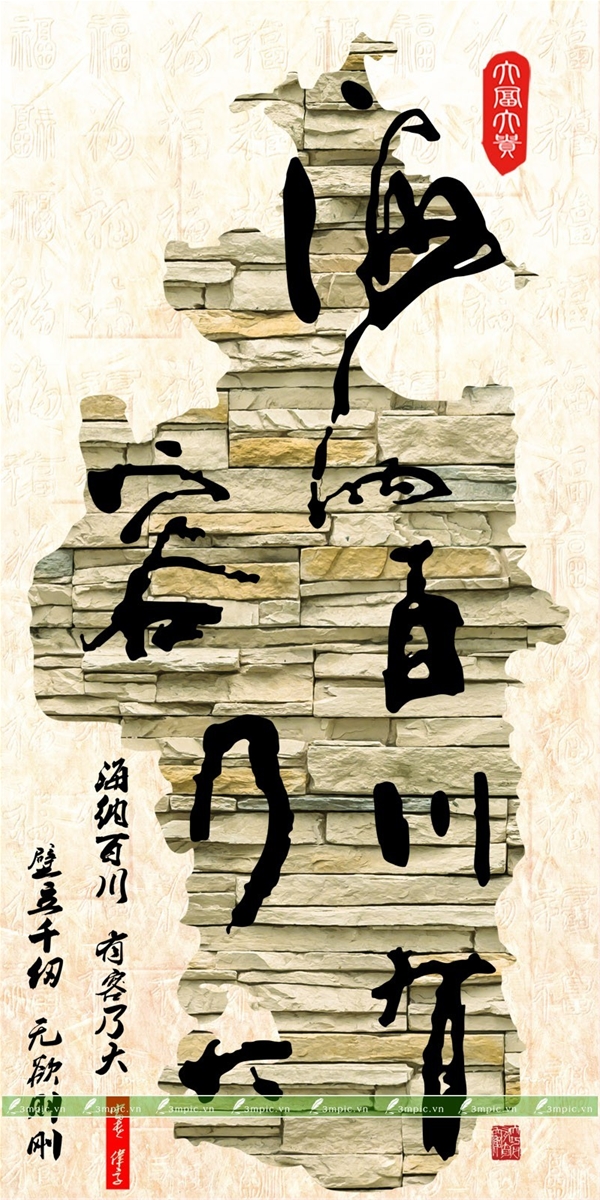 大富大貴
海纳百川有
容乃大
海纳百川 有容乃大
壁立千仞 无欲则刚
3mpic.vn 3mpic.vn 3mpic.vn 3mpic.vn 3mpic.vn 3mpic.vn 3mpic.vn 3mpic.vn